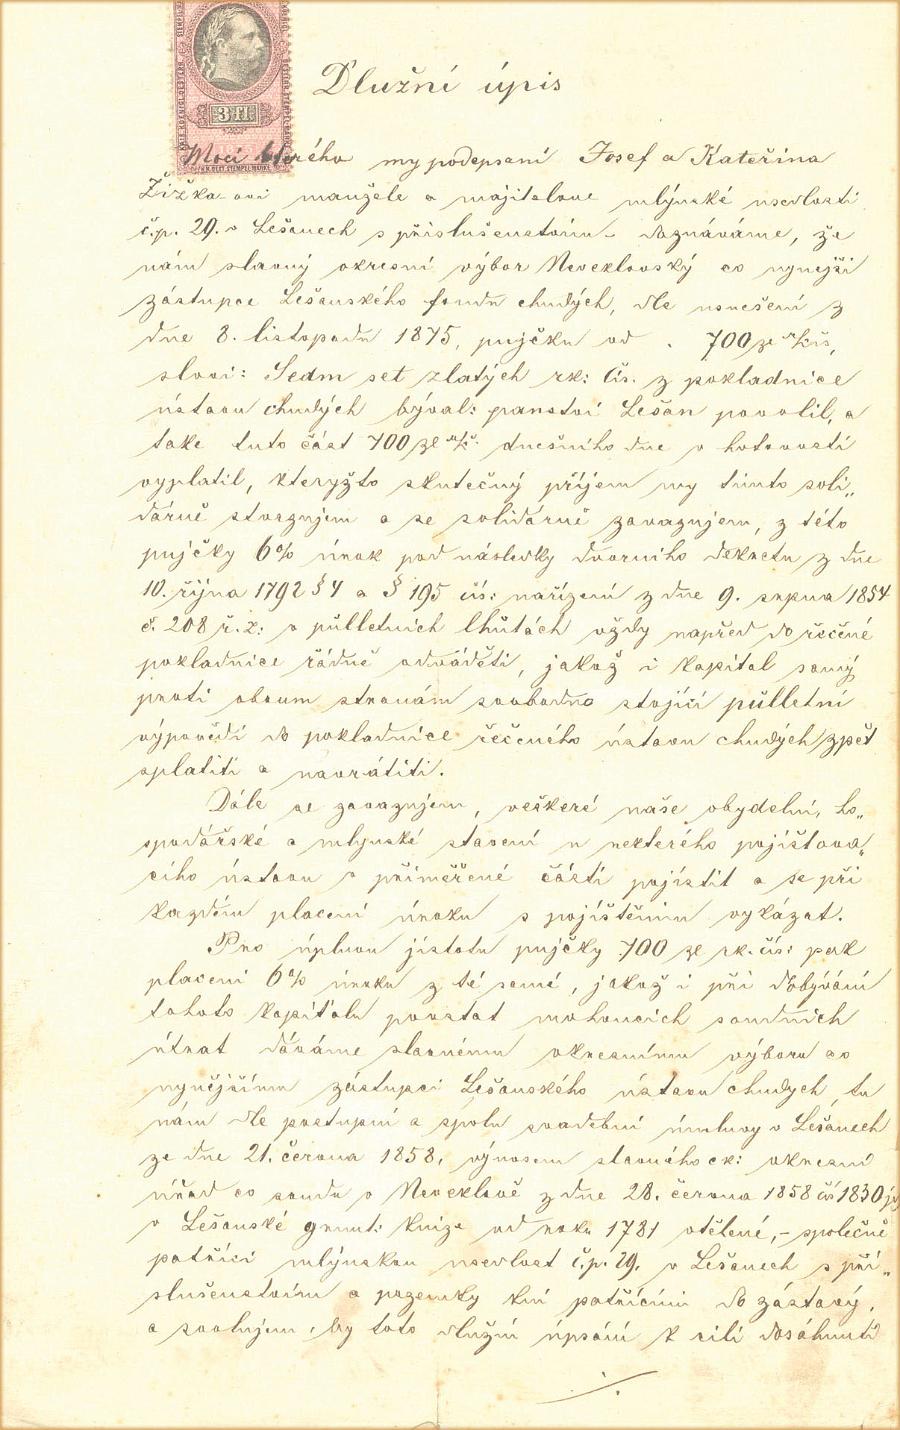 3 Fl
Dlužní úpis
Mocí kterého my podepsaní Josef a Kateřina
Žižka-ovi manžele a majitelove mlýnské usedlosti
č.p. 29. v Lešanech s příslušenstvím – doznáváme, že
nám slavný okresní výbor Neveklovský co nynejší
zástupce Lešanského fondu chudých, dle usnešení z
dne 8. listopadu 1875, pujčku od . 700 zl
slovi: Sedm set zlatých rk: čís. z pokladnice
ústavu chudých býval: panství Lešan povolil, a
take tuto část 700 zl dnešního dne v hotovosti
vyplatil, kteryžto skutečný příjem my tímto soli„
dárně stvrzujem a se solidárně zavazujem, z této
pujčky 6% úrok pod následky dvorního dekretu z dne
10. října 1792 § 4 a § 195 čís: nařízení z dne 9. srpna 1854
č. 208 ř. z: v půlletních lhůtách vždy napřed do řečéné
pokladnice řádně odváděti, jakož i kapitál samý
proti oboum stranám svobodno stojící půlletní
výpovědí do pokladnice řečeného ústavu chudých zpět
splatiti a navrátiti.
Dále se zavazujem, veškeré naše obydelní, ho„
spodářské a mlynské stavení u nekterého pojišťova„
cího ústavu v přiměřené částí pojistit a se při
každém placení úroku s pojištěním vykázat.
Pro úplnou jistotu pujčky 700 zl rk. čís: pak
placení 6% úroku z té samé, jakož i při dobývání
tohoto kapitálu povstat mohoucích soudních
útrat dáváme slavnému okresnímu výboru co
nynějšímu zástupci Lešanského ústavu chudych, tu
nám dle postupní a spolu svadební úmluvy v Lešanech
ze dne 21. června 1858, výnosem slavného ck: okresní
úřad co soudu v Neveklově z dne 28. června 1858 čís 1830
v Lešanské grunt: knize od roku 1781 vtělené, – společně
patřící mlýnskou usedlost č.p. 29. v Lešanech s pří„
slušenstvím a pozemky kní patřícími do zástavý,
a svolujem, by toto dlužní úpsání k cíli dosáhnutí